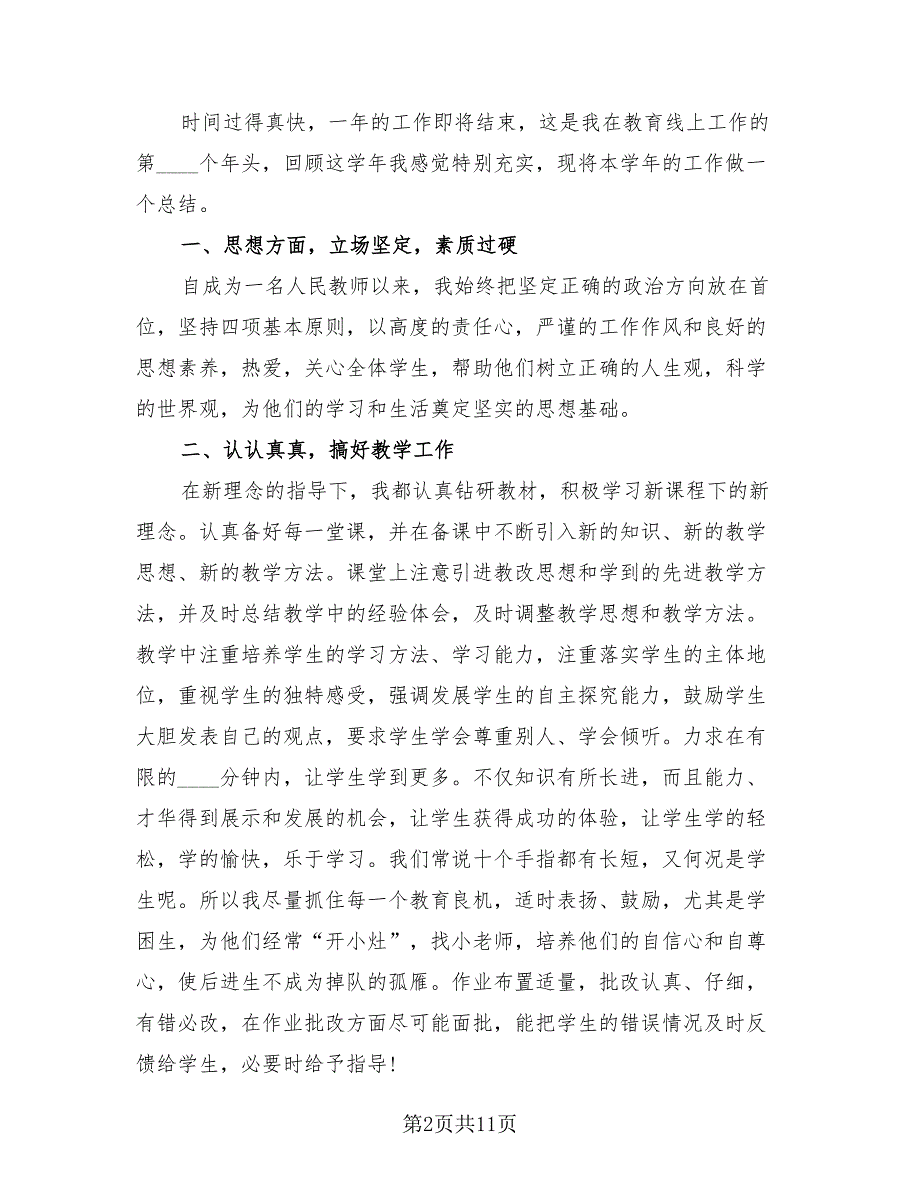 时间过得真快，一年的工作即将结束，这是我在教育线上工作的
第____个年头，回顾这学年我感觉特别充实，现将本学年的工作做一
个总结。
一、思想方面，立场坚定，素质过硬
自成为一名人民教师以来，我始终把坚定正确的政治方向放在首
位，坚持四项基本原则，以高度的责任心，严谨的工作作风和良好的
思想素养，热爱，关心全体学生，帮助他们树立正确的人生观，科学
的世界观，为他们的学习和生活奠定坚实的思想基础。
二、认认真真，搞好教学工作
在新理念的指导下，我都认真钻研教材，积极学习新课程下的新
理念。认真备好每一堂课，并在备课中不断引入新的知识、新的教学
思想、新的教学方法。课堂上注意引进教改思想和学到的先进教学方
法，并及时总结教学中的经验体会，及时调整教学思想和教学方法。
教学中注重培养学生的学习方法、学习能力，注重落实学生的主体地
位，重视学生的独特感受，强调发展学生的自主探究能力，鼓励学生
大胆发表自己的观点，要求学生学会尊重别人、学会倾听。力求在有
限的____分钟内，让学生学到更多。不仅知识有所长进，而且能力、
才华得到展示和发展的机会，让学生获得成功的体验，让学生学的轻
松，学的愉快，乐于学习。我们常说十个手指都有长短，又何况是学
生呢。所以我尽量抓住每一个教育良机，适时表扬、鼓励，尤其是学
困生，为他们经常“开小灶”，找小老师，培养他们的自信心和自尊
心，使后进生不成为掉队的孤雁。作业布置适量，批改认真、仔细，
有错必改，在作业批改方面尽可能面批，能把学生的错误情况及时反
馈给学生，必要时给予指导!
第2页共11页